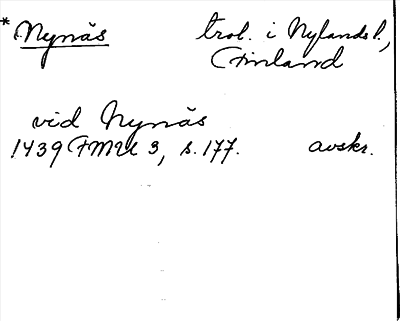 *Nynäs trol. i Nylands l.,
Finland
vid Nynäs
1439 FMU 3, s. 177. avskr.